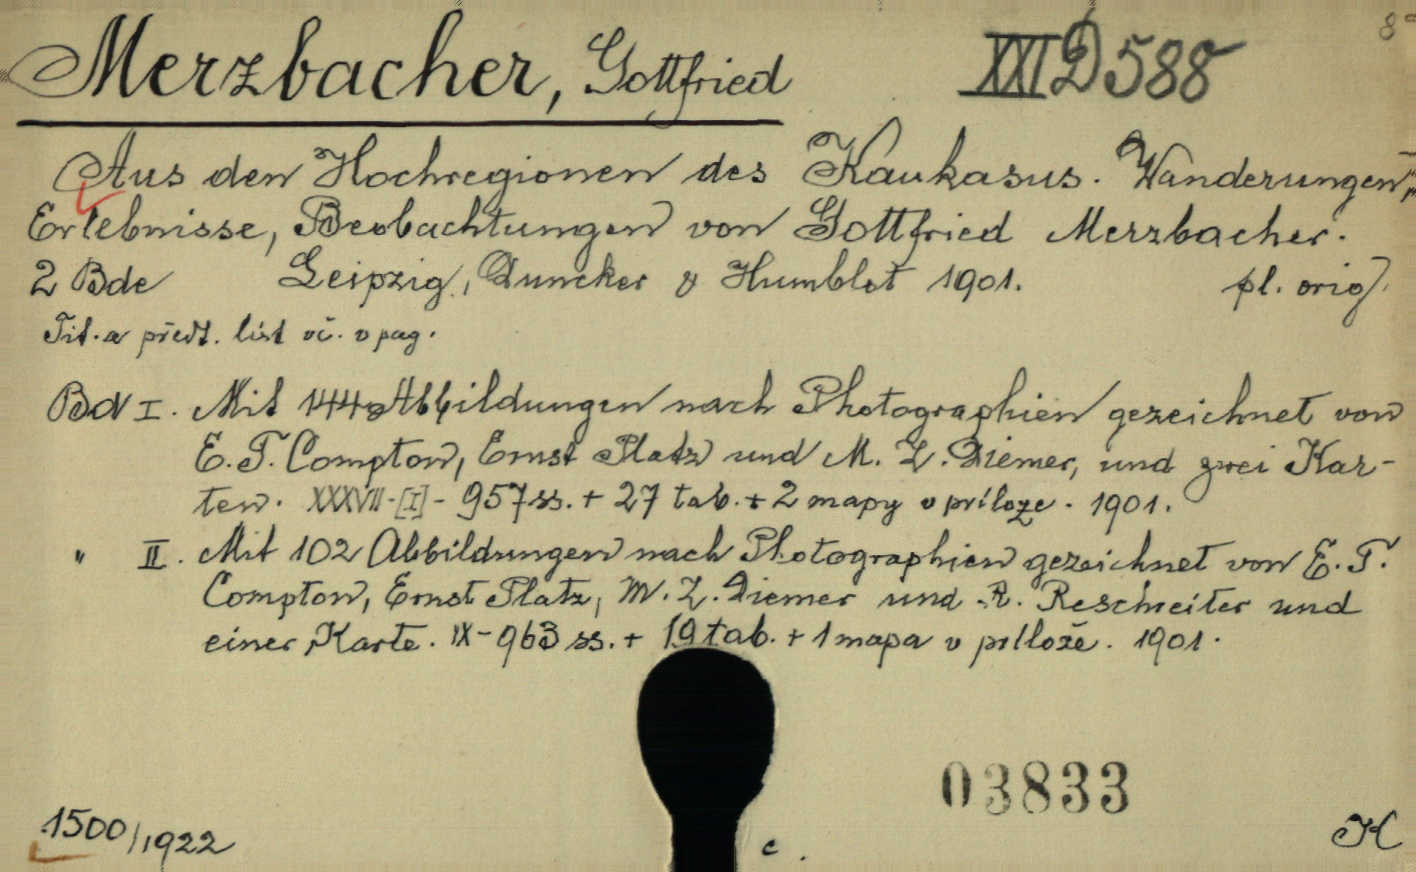 Merzbacher, Gottfried XXI D 588 8°
Aus den Hochregionen des Kaukasus. Wanderungen,
Erlebnisse, Beobachtungen von Gottfried Merzbacher.
2 Bde Leipzig, Duncker & Humblot 1901. pl. orig.
Tit. a předt. list vč. v pag.
Bd I. Mit 144 Abbildungen nach Photographien gezeichnet von
E. T. Compton, Ernst Platz und M. Z. Diemer, und zwei Kar-
ten. XXXVII-[I]- 957 ss. + 27 tab. + 2 mapy v příloze. 1901.
" II. Mit 102 Abbildungen nach Photographien gezeichnet von E. T.
Compton, Ernst Platz, M. Z. Diemer und R. Reschreiter und
einer Karte. IX- 963 ss. + 19 tab. + 1 mapa v příloze. 1901.
03833
1500/1922 c. K